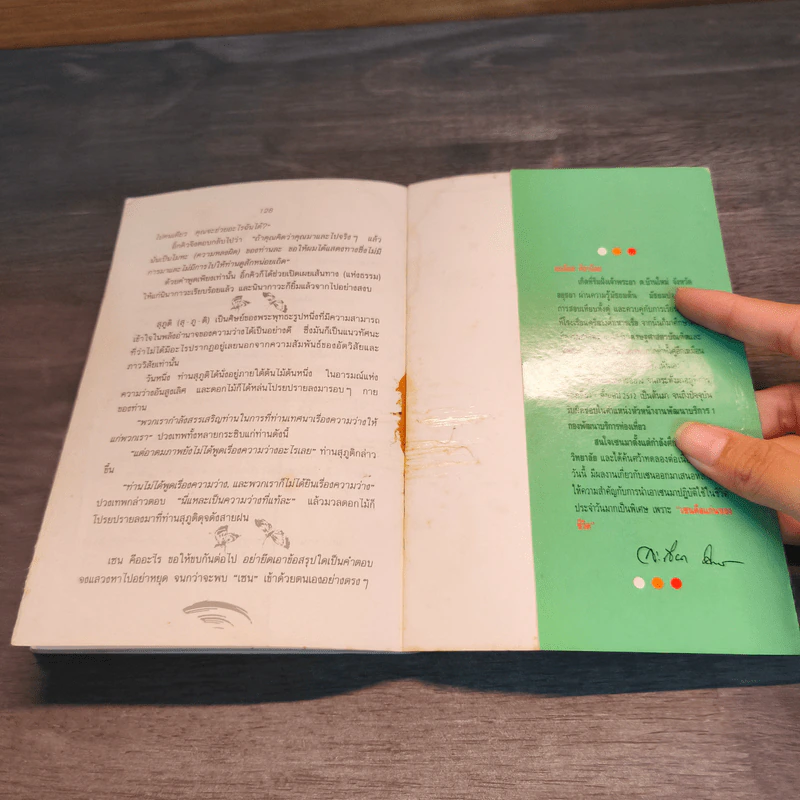 128
ไปคนเดียว คุณจะช่วยอะไรฉันได้?"
อิ๊กคิวจึงตอบกลับไปว่า "ถ้าคุณคิดว่าคุณมาและไปจริงๆ แล้ว
นั่นเป็นโมหะ (ความหลงผิด) ของท่านละ ขอให้ผมได้แสดงทางซึ่งไม่มี
การมาและไม่มีการไปให้ท่านดูสักหน่อยเถิด"
ด้วยคำพูดเพียงเท่านั้น อิ๊กคิวก็ได้ช่วยเปิดเผยเส้นทาง (แห่งธรรม)
ให้แก่นินากาวะเรียบร้อยแล้ว และนินากาวะก็ยิ้มแล้วจากไปอย่างสงบ
สุภูติ (สุ ภู ติ) เป็นศิษย์ของพระพุทธะรูปหนึ่งที่มีความสามารถ
เข้าใจในพลังอำนาจของความว่างได้เป็นอย่างดี ซึ่งมันก็เป็นแนวทัศนะ
ที่ว่าไม่ได้มีอะไรปรากฏอยู่เลยนอกจากความสัมพันธ์ของอัตวิสัยและ
ภาววิสัยเท่านั้น
วันหนึ่ง ท่านสุภูติได้นั่งอยู่ภายใต้ต้นไม้ต้นหนึ่ง ในอารมณ์แห่ง
ความว่างอันสูงเลิศ และดอกไม้ก็ได้หล่นโปรยปรายลงมารอบๆ กาย
ของท่าน
"พวกเรากำลังสรรเสริญท่านในการที่ท่านเทศนาเรื่องความว่างให้
แก่พวกเรา" ปวงเทพทั้งหลายกระซิบแก่ท่านดังนี้
"แต่อาตมภาพยังไม่ได้พูดเรื่องความว่างอะไรเลย" ท่านสุภูติกล่าว
ขึ้น
"ท่านไม่ได้พูดเรื่องความว่าง, และพวกเราก็ไม่ได้ยินเรื่องความว่าง"
ปวงเทพกล่าวตอบ "นี่แหละเป็นความว่างที่แท้ละ" แล้วมวลดอกไม้ก็
โปรยปรายลงมาที่ท่านสุภูติดุจดังสายฝน
เซน คืออะไร ขอให้ขบกันต่อไป อย่ายึดเอาข้อสรุปใดเป็นคำตอบ
จงแสวงหาไปอย่าหยุด จนกว่าจะพบ "เซน" เข้าด้วยตนเองอย่างตรงๆ
เกิดที่ริมฝั่งเจ้าพระยา ต.บ้านใหม่ จังหวัด
อยุธยา ผ่านความรู้มัธยมต้น
การสอบเทียบ และควบคู่กับการเรียน
เป็นต้นมา จนถึงปัจจุบัน
รับผิดชอบในตำแหน่งหัวหน้างานพัฒนาบริการ 1
กองพัฒนาบริการท่องเที่ยว
สนใจเซนมาตั้งแต่กำลังศึกษา
วิทยาลัย และได้ค้นคว้าทดลองต่อเนื่อง
วันนี้ มีผลงานเกี่ยวกับเซนออกมาเสนอ
ให้ความสำคัญกับการนำเอาเซนมาปฏิบัติใช้ในชีวิต
ประจำวันมากเป็นพิเศษ เพราะ "เซนคือแก่นของ
ชีวิต"